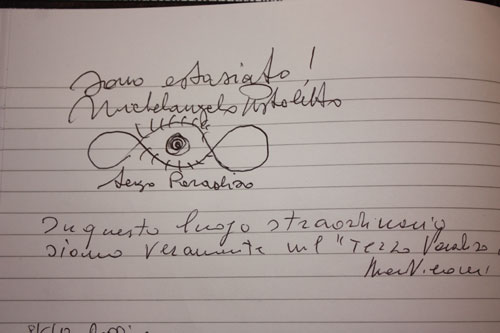 Sono estasiato!
Michelangelo Pistoletto
Terzo Paradiso
In questo luogo straordinario
siamo veramente nel "Terzo Paradiso